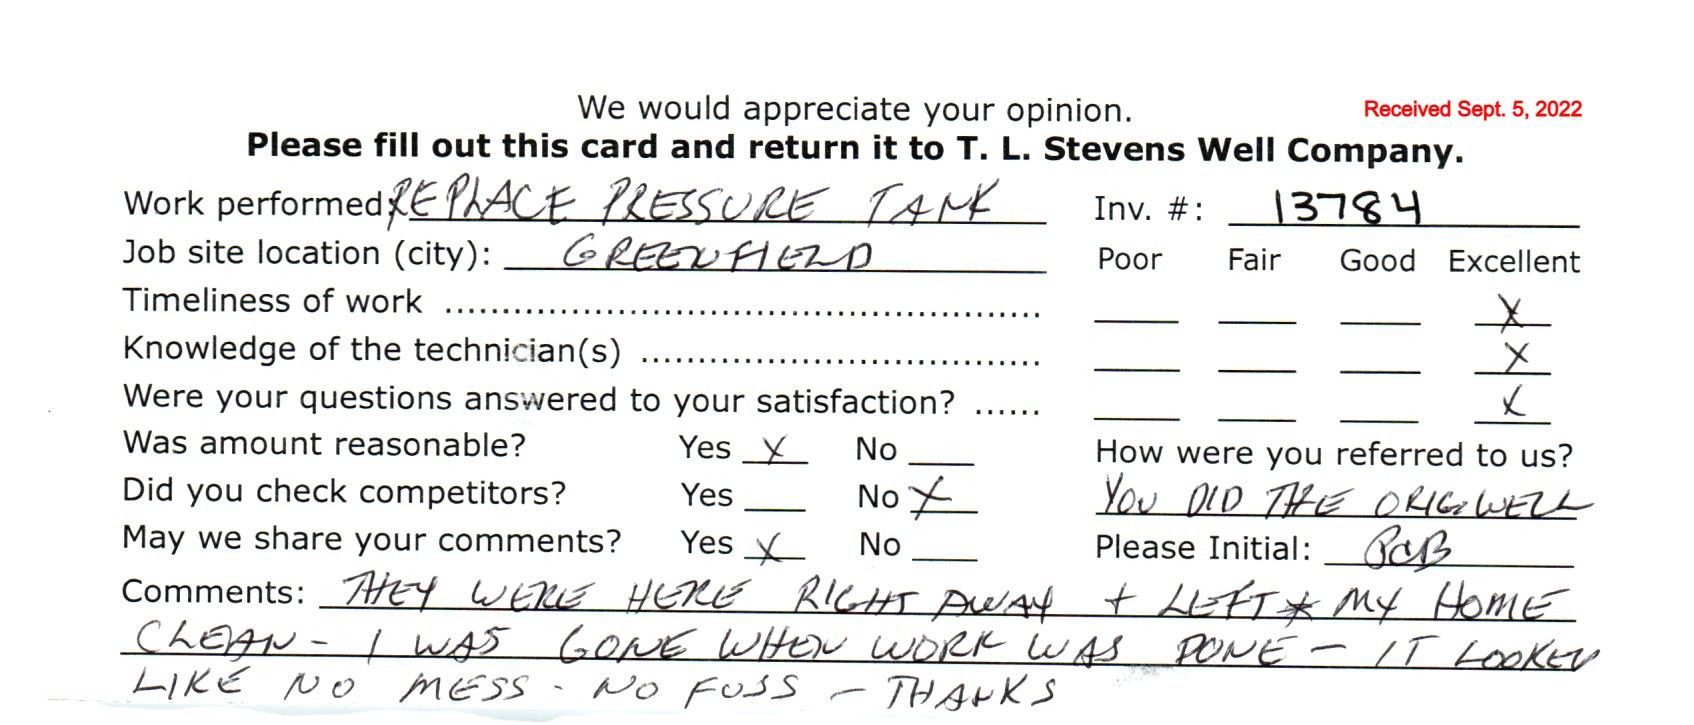 We would appreciate your opinion. Received Sept. 5, 2022
Please fill out this card and return it to T. L. Stevens Well Company.
Work performed: REPLACE PRESSURE TANK Inv. #: 13784
Job site location (city): GREENFIELD Poor Fair Good Excellent
Timeliness of work .................................................... X
Knowledge of the technician(s) ................................... X
Were your questions answered to your satisfaction? ...... X
Was amount reasonable? Yes X No ___ How were you referred to us?
Did you check competitors? Yes ___ No X YOU DID THE ORIG. WELL
May we share your comments? Yes X No ___ Please Initial:
Comments: THEY WERE HERE RIGHT AWAY + LEFT MY HOME
CLEAN - I WAS GONE WHEN WORK WAS DONE - IT LOOKED
LIKE NO MESS - NO FUSS - THANKS